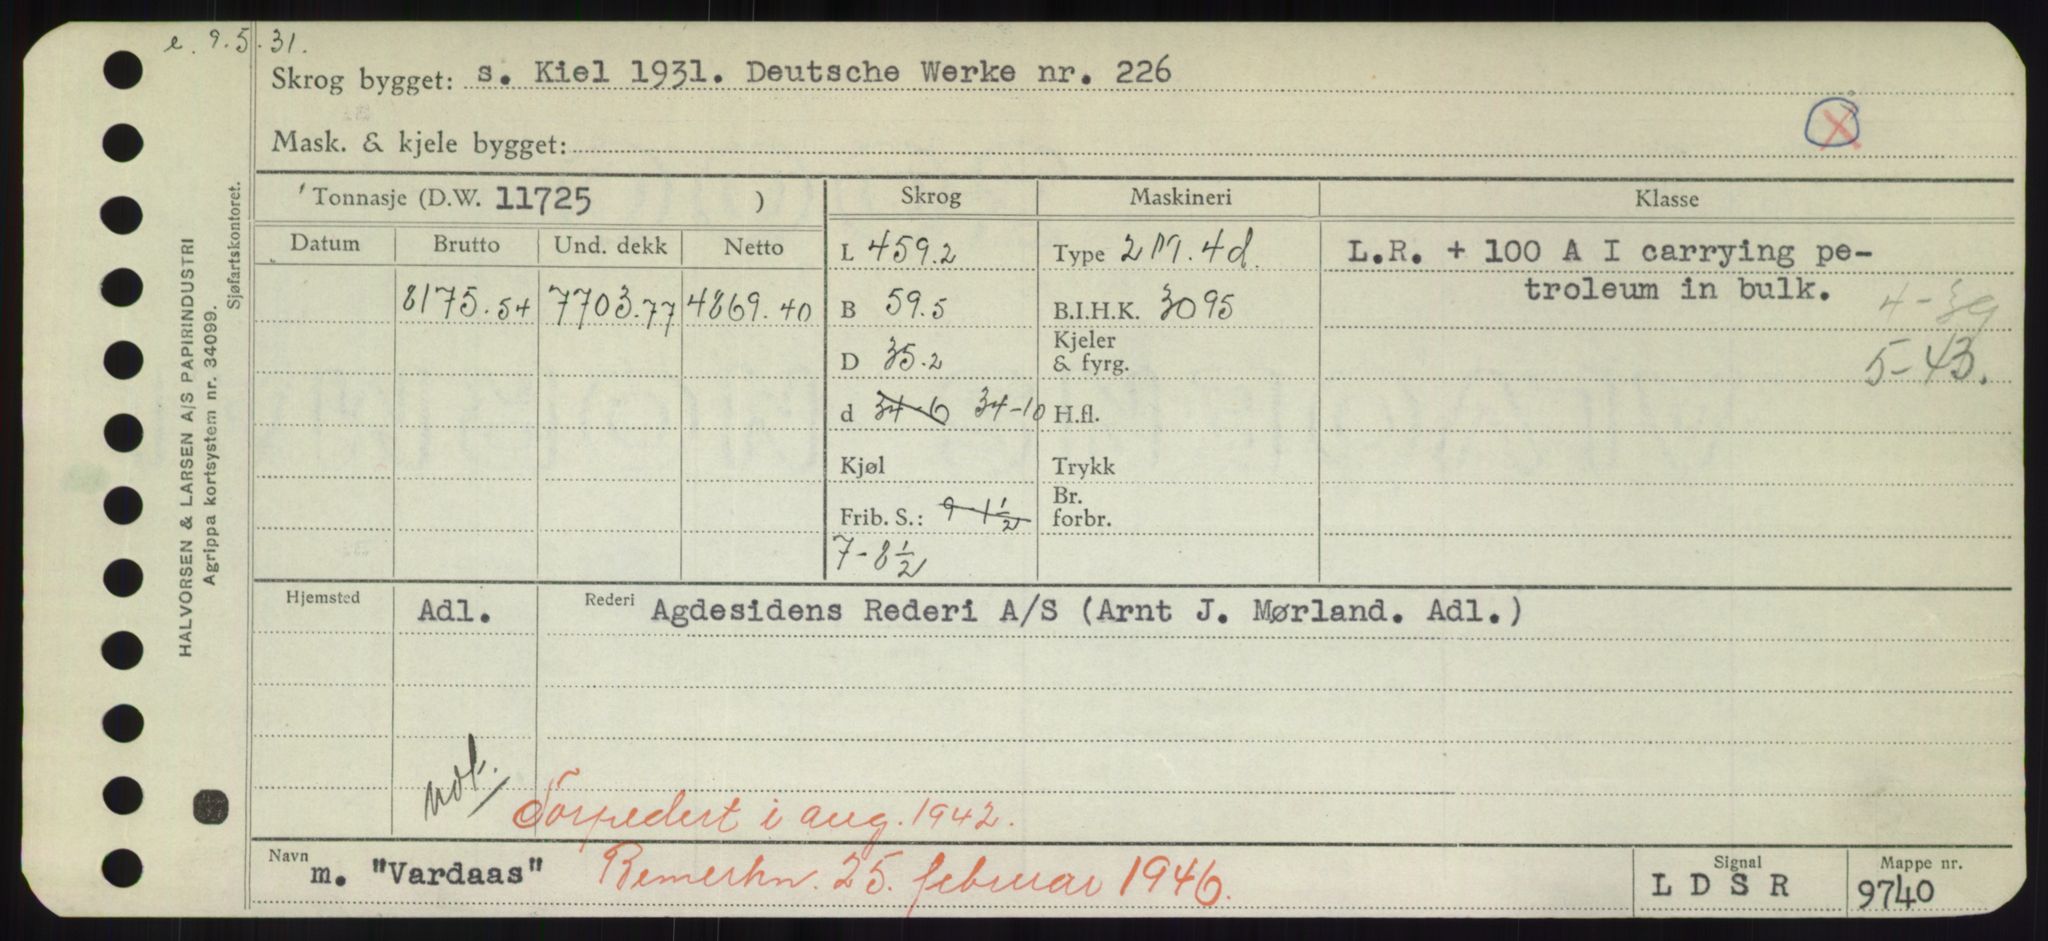 e. 9.5.31.
Skrog bygget: s. Kiel 1931. Deutsche Werke nr. 226
Mask. & kjele bygget:
X
Tonnasje (D.W. 11725 )
Skrog
Maskineri
Klasse
Datum Brutto Und. dekk Netto
8175.54 7703.77 4869.40
L 459.2
B 59.5
D 35.2
d 34-6 34-10
Kjøl
Frib. S.: 9-1½
7-8½
Type 2 M. 4d.
B.I.H.K. 3095
Kjeler
& fyrg.
H.fl.
Trykk
Br.
forbr.
L.R. + 100 A I carrying pe-
troleum in bulk.
4-39
5-43.
Hjemsted Adl. Rederi Agdesidens Rederi A/S (Arnt J. Mørland. Adl.)
Torpedert i aug. 1942.
Navn m. "Vardaas" Bemerkn. 25. februar 1946.
Signal L D S R
Mappe nr. 9740
HALVORSEN & LARSEN A/S PAPIRINDUSTRI
Agrippa kortsystem nr. 34099.
Sjøfartskontoret.